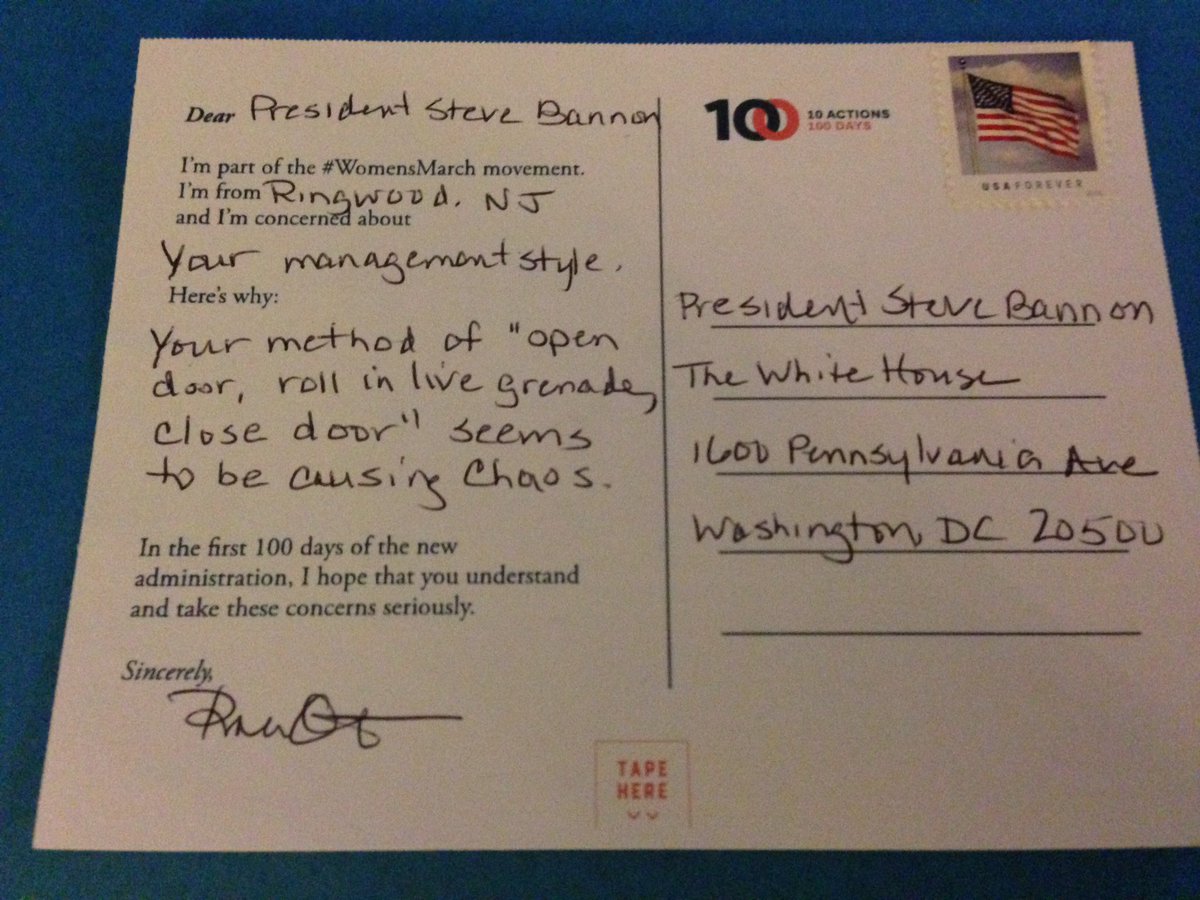 Dear President Steve Bannon
I'm part of the #WomensMarch movement.
I'm from Ringwood, NJ
and I'm concerned about
Your management style.
Here's why:
Your method of "open
door, roll in live grenade,
close door" seems
to be causing chaos.
In the first 100 days of the new
administration, I hope that you understand
and take these concerns seriously.
Sincerely,
100 10 ACTIONS
100 DAYS
USA FOREVER
President Steve Bannon
The White House
1600 Pennsylvania Ave
Washington, DC 20500
TAPE
HERE